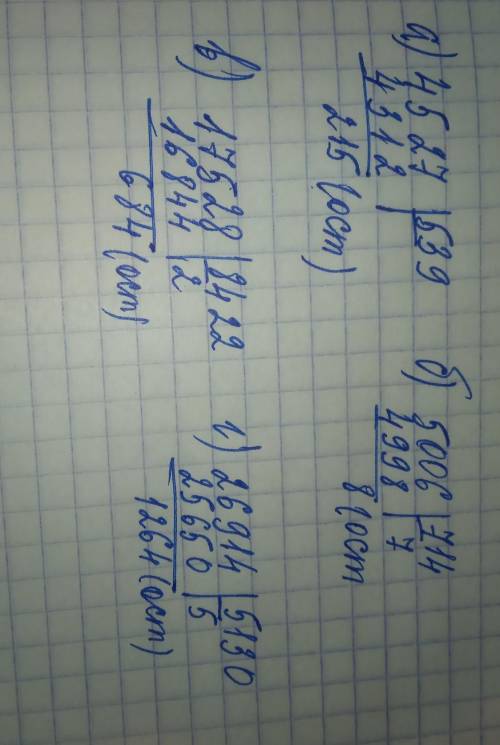 а) 4527 | 539
4312 |
215 (ост)
б) 5006 | 714
4998 | 7
8 (ост
в) 17528 | 8422
16844 | 2
684 (ост)
г) 26914 | 5130
25650 | 5
1264 (ост)